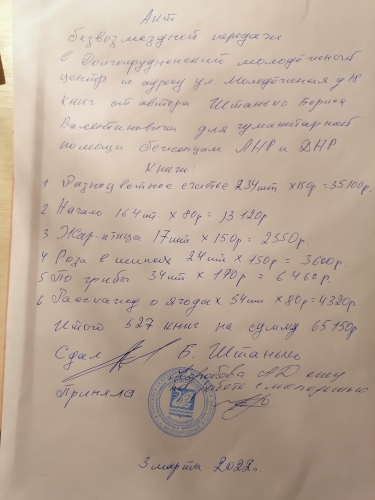 Акт
безвозмездной передачи
в Долгопрудненский молодёжный
центр по адресу ул. Молодёжная д
книг от автора Штанько Бориса
Валентиновича для гуманитарной
помощи беженцам ЛНР и ДНР
Книги:
1 Разноцветное счастье 234шт х150р = 35100р.
2 Начало 164шт. х 80р = 13120р
3 Жар-птица 17шт х 150р = 2550р.
4 Роза в шипах 24шт х 150р = 3600р
5 По грибы 34шт х 190р = 6460р.
6 Рассказ о ягодах 54шт х 80р = 4320р
Итого 527 книг на сумму 65150р.
Сдал Б. Штанько
Коробова
Приняла по работе с молодежью
3 марта 2022г